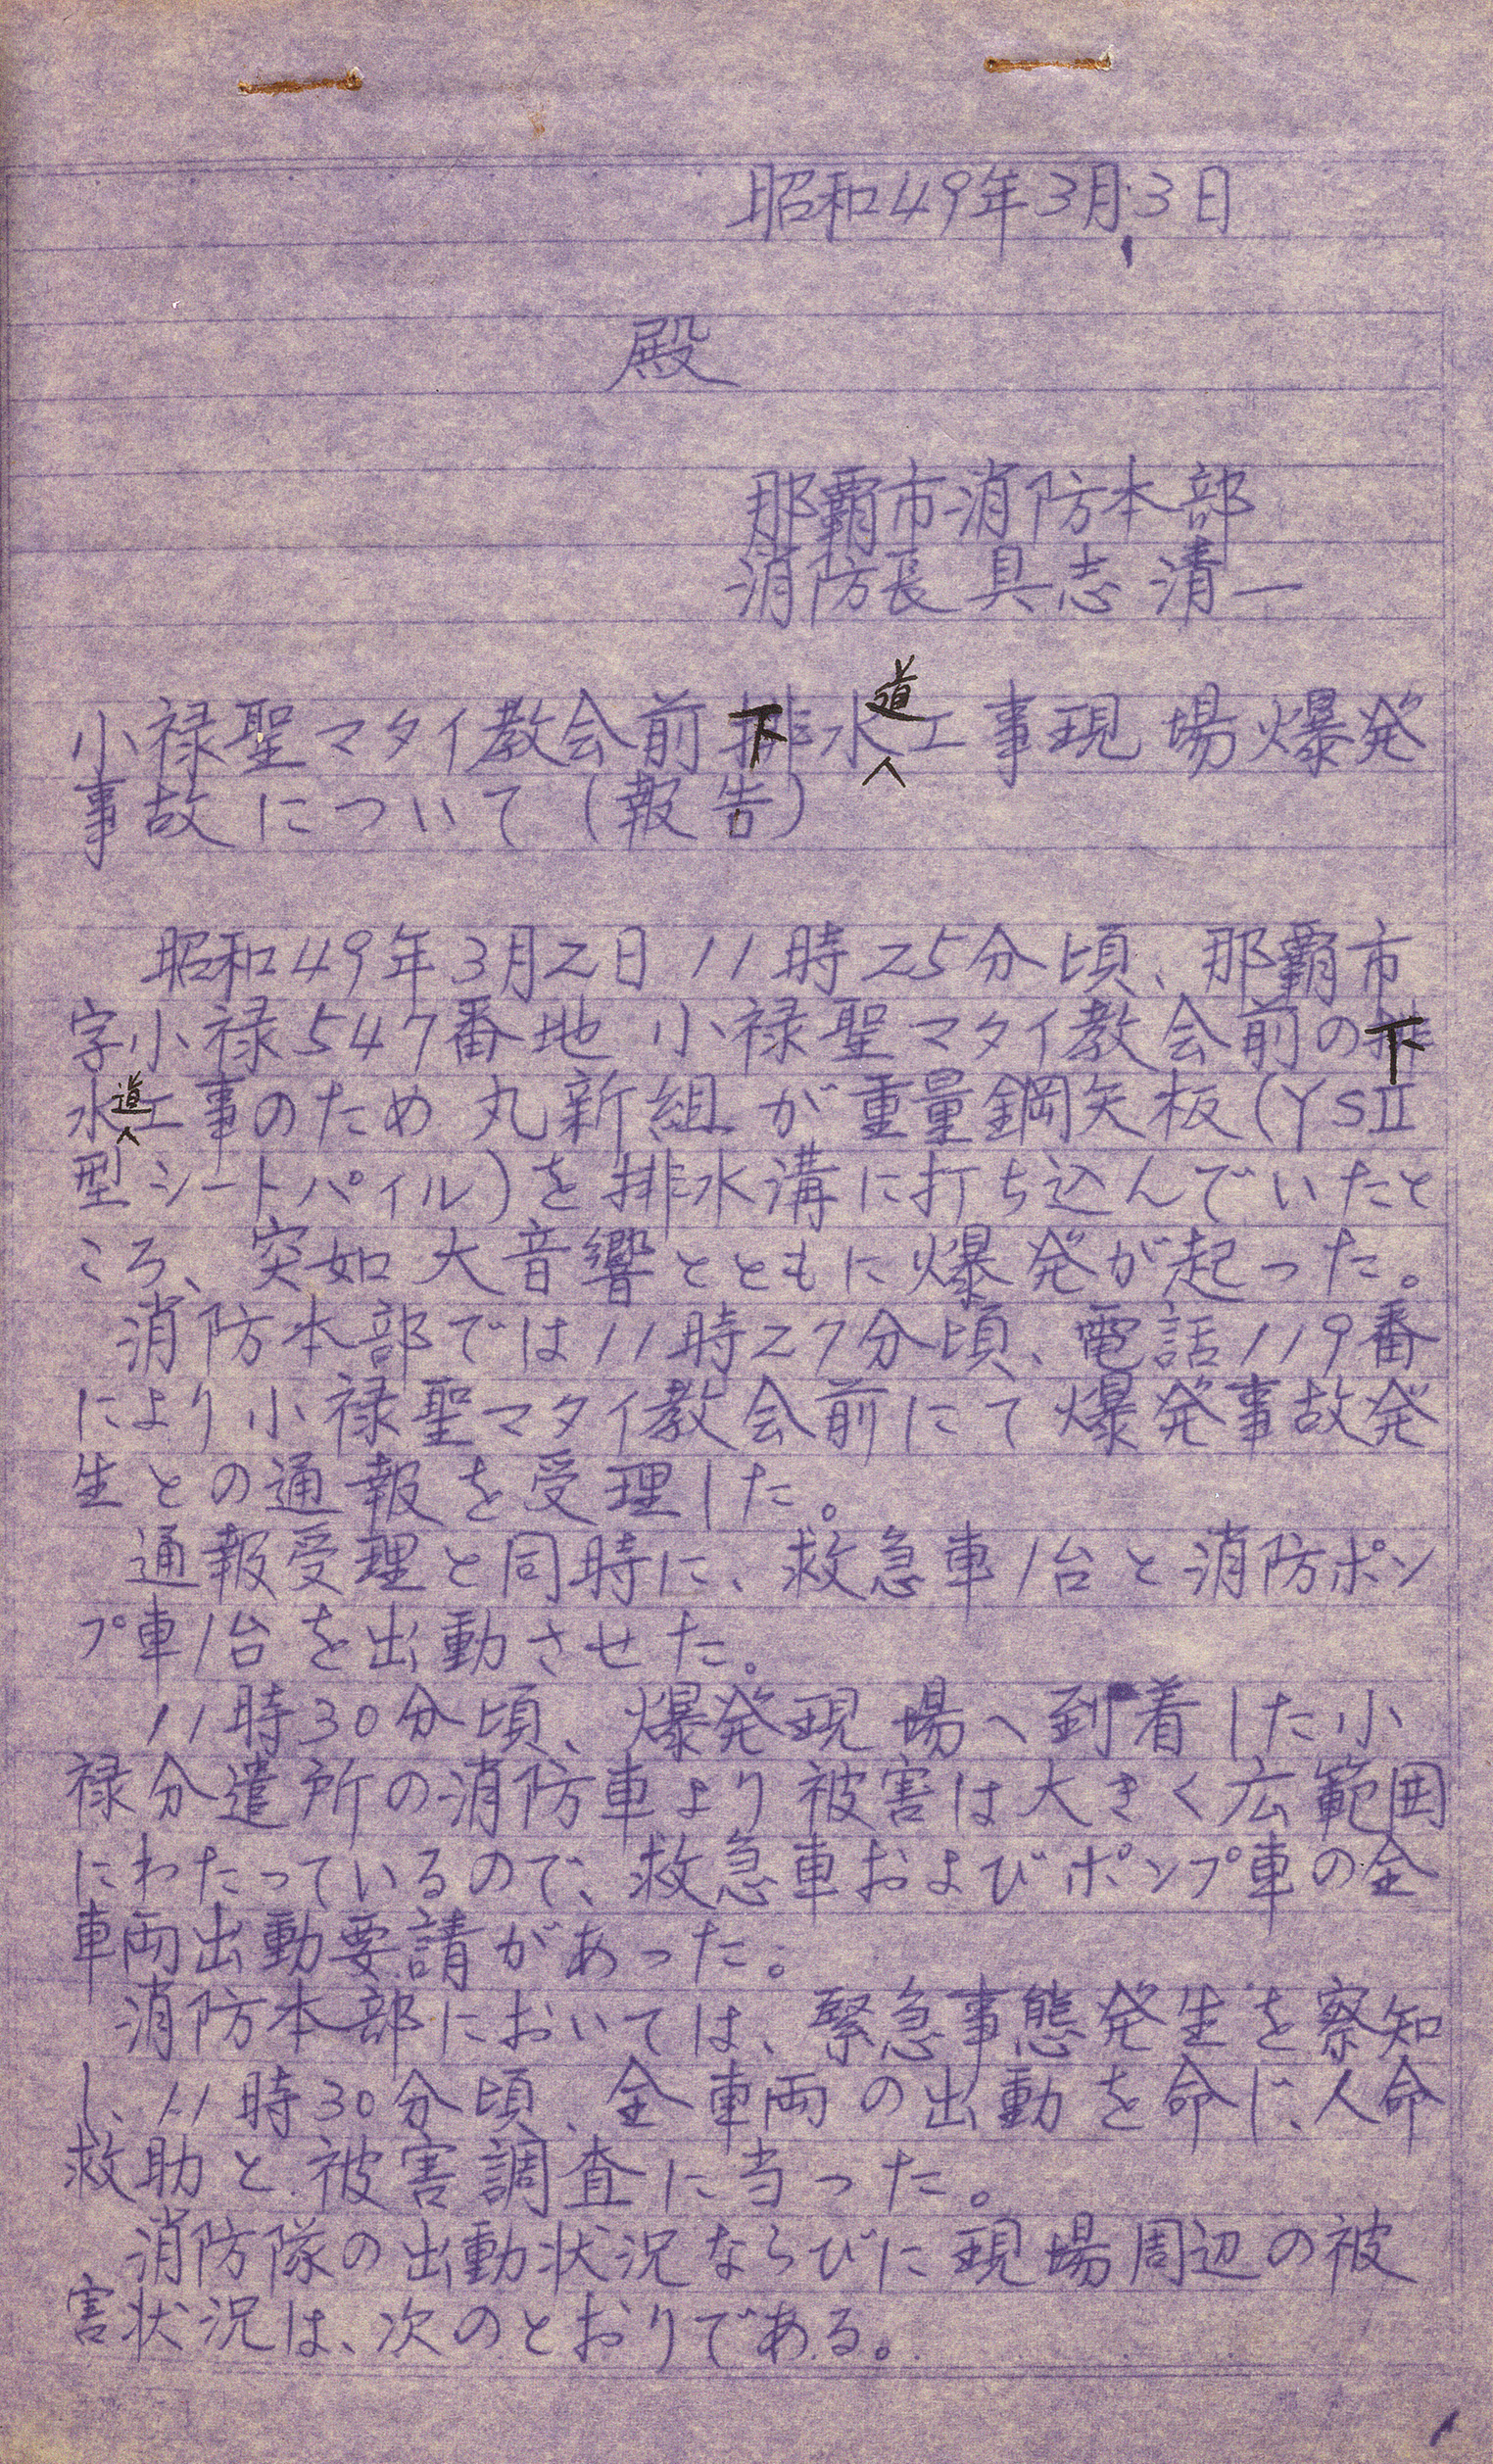 昭和49年3月3日
殿
那覇市消防本部
消防長 具志清一
小禄聖マタイ教会前下水道工事現場爆発
事故について(報告)
昭和49年3月2日11時25分頃、那覇市
字小禄547番地小禄聖マタイ教会前の下
水道工事のため丸新組が重量鋼矢板(YSⅡ
型シートパイル)を排水溝に打ち込んでいたと
ころ、突如大音響とともに爆発が起った。
消防本部では11時27分頃、電話119番
により小禄聖マタイ教会前にて爆発事故発
生との通報を受理した。
通報受理と同時に、救急車1台と消防ポン
プ車1台を出動させた。
11時30分頃、爆発現場へ到着した小
禄分遣所の消防車より被害は大きく広範囲
にわたっているので、救急車およびポンプ車の全
車両出動要請があった。
消防本部においては、緊急事態発生を察知
し、11時30分頃、全車両の出動を命じ、人命
救助と被害調査に当った。
消防隊の出動状況ならびに現場周辺の被
害状況は、次のとおりである。
1